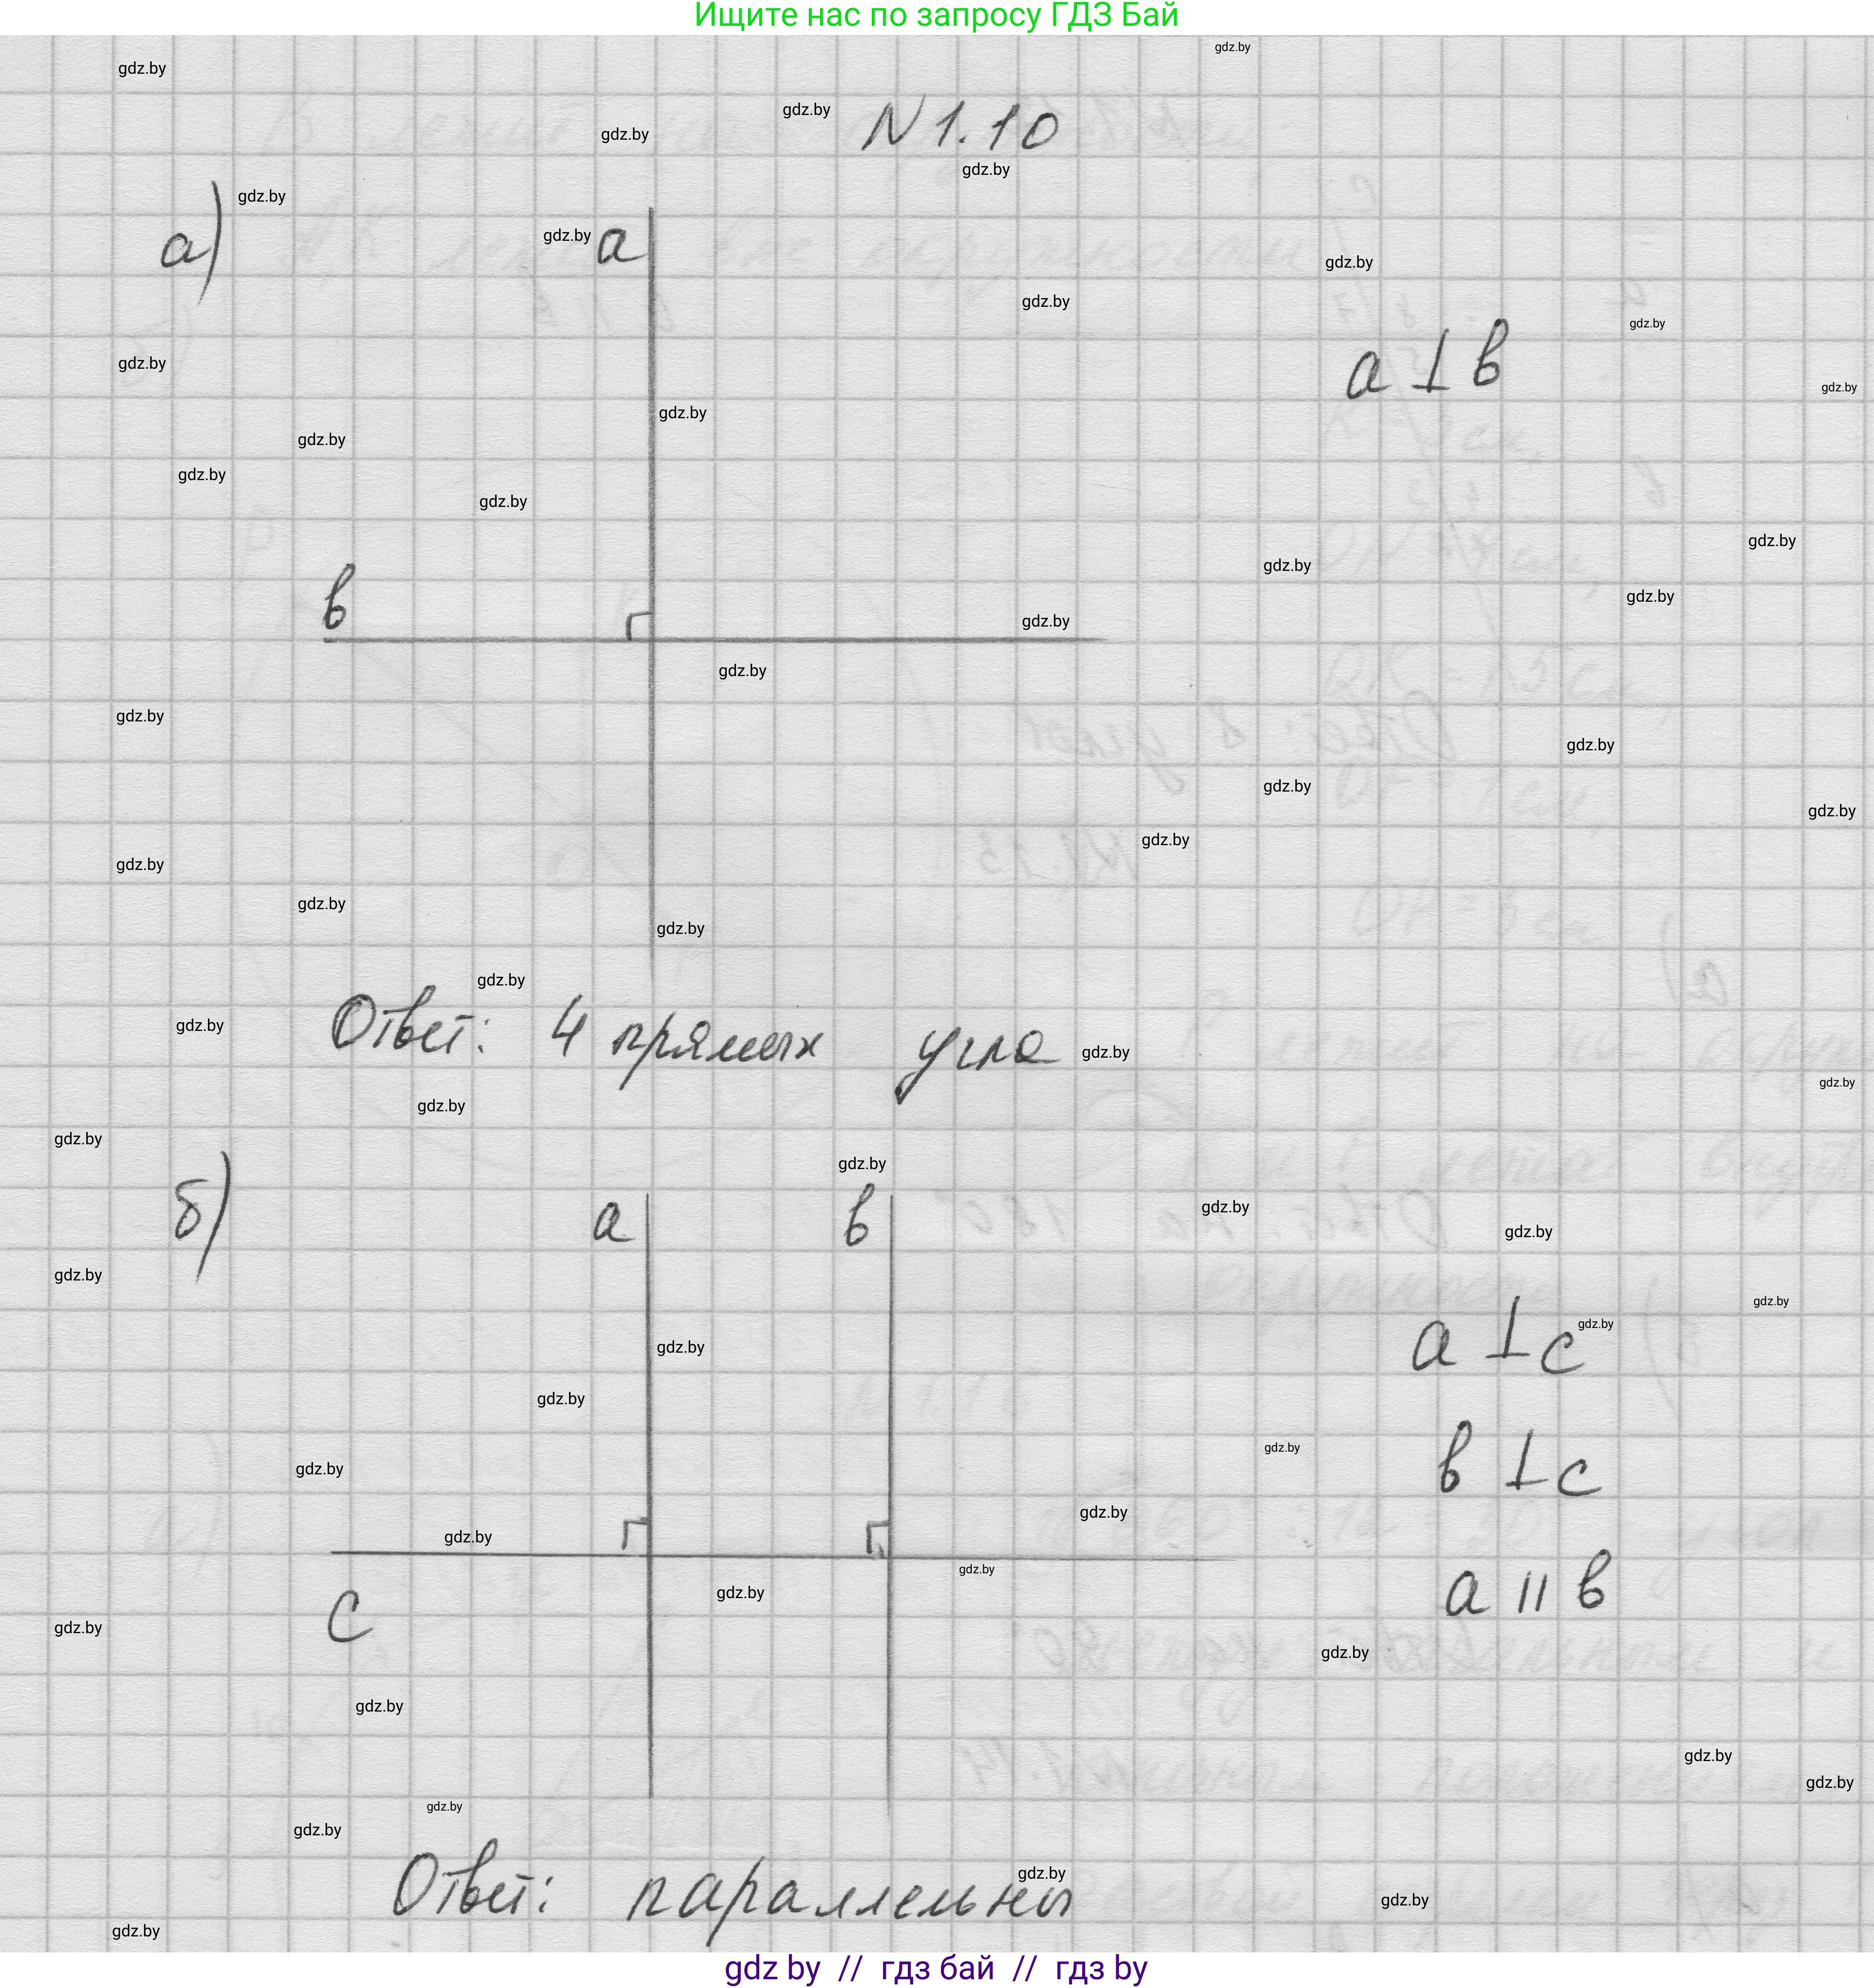 Ищите нас по запросу ГДЗ Бай
N 1.10
а)
a
a ⊥ в
в
Ответ: 4 прямых угла
б)
a
в
a ⊥ c
в ⊥ c
a || в
c
Ответ: параллельны
gdz by // гдз бай // гдз by
gdz.by